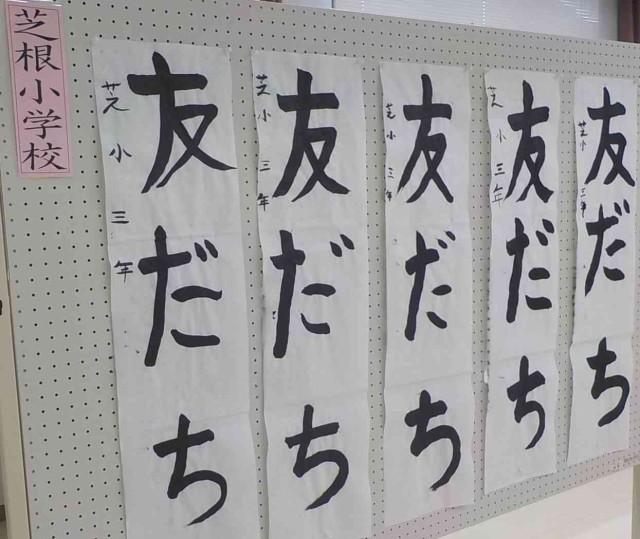 芝根小学校
友だち
芝小三年
友だち
芝小三年
友だち
芝小三年
友だち
芝小三年
友だち
芝小三年